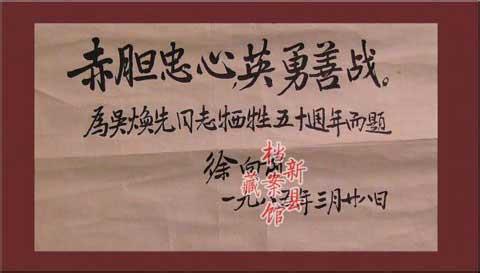 赤胆忠心,英勇善战。
為吴焕先同志牺牲五十週年而题
徐向前
一九八五年三月廿八日
新县
档案馆
藏